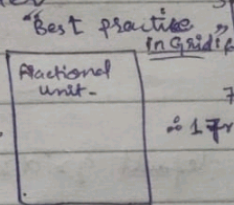 "Best practice
in Grid"
Fractional
unit-
∴ 1fr